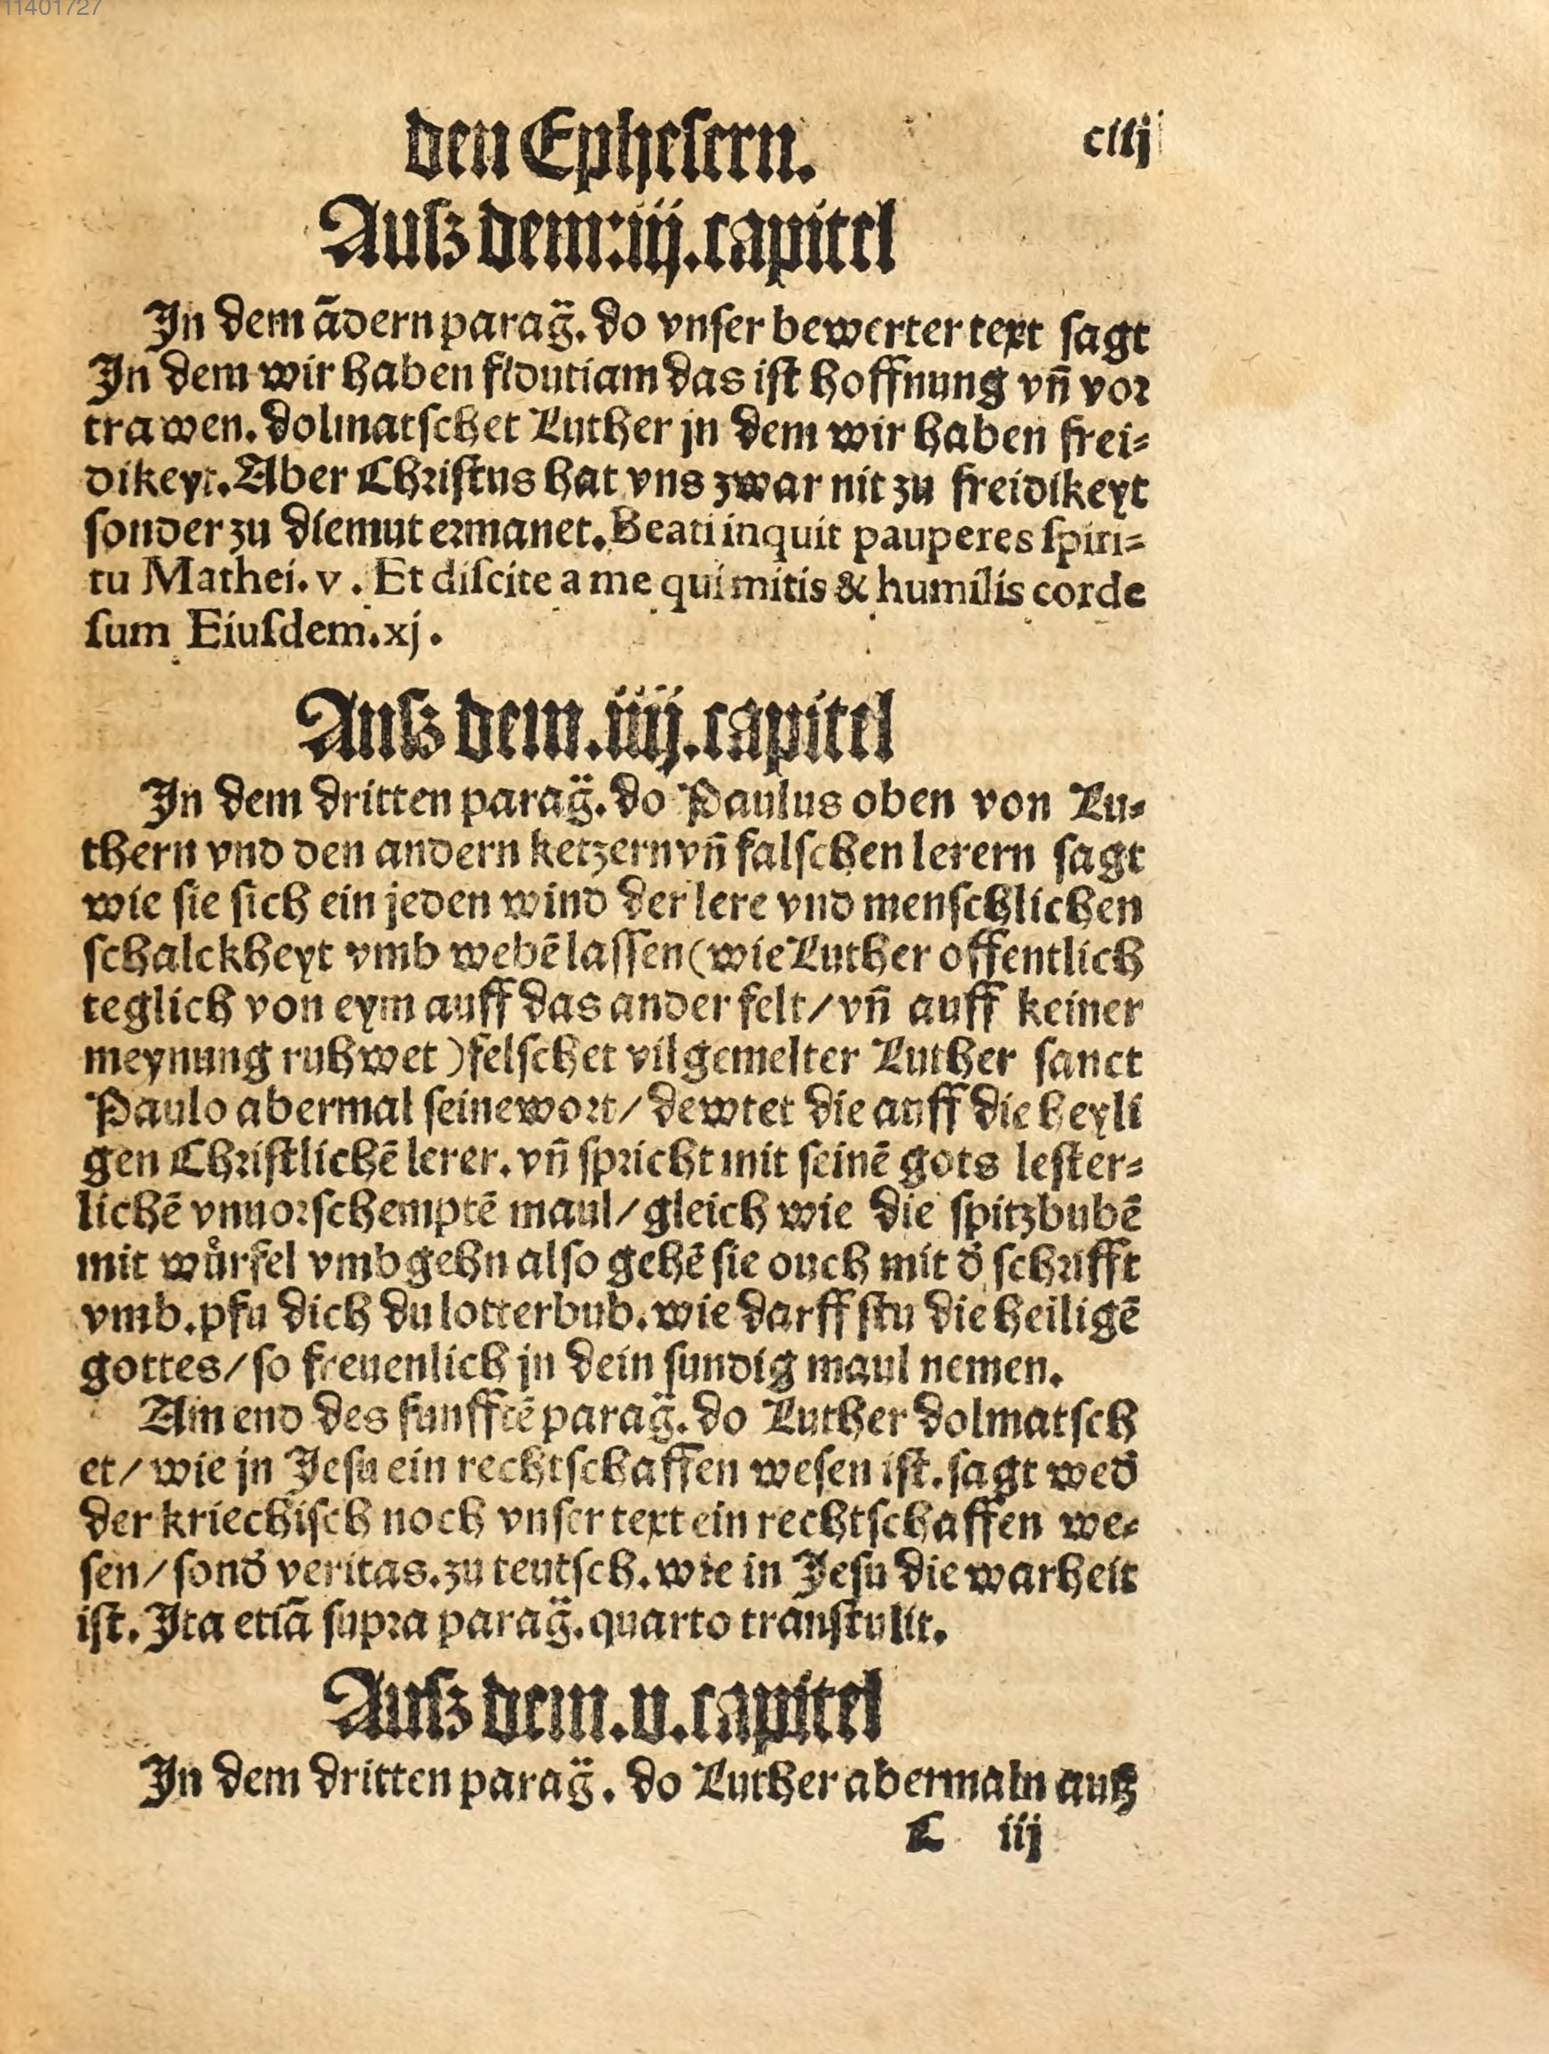 11401727
den Ephesern. ciij
Ausz dem.iij.capitel
In dem ãdern parag̃. do vnser bewerter text sagt
In dem wir haben fidutiam das ist hoffnung vñ vor
trawen. dolmatschet Luther jn dem wir haben frei⸗
dikeyt. Aber Christus hat vns zwar nit zu freidikeyt
sonder zu diemut ermanet. Beati inquit pauperes spiri⸗
tu Mathei. v. Et discite a me qui mitis & humilis corde
sum Eiusdem. xj.
Ausz dem.iiij.capitel
In dem dritten parag̃. do Paulus oben von Lu⸗
thern vnd den andern ketzern vñ falschen lerern sagt
wie sie sich ein jeden wind der lere vnd menschlichen
schalckheyt vmb webẽ lassen (wie Luther offentlich
teglich von eym auff das ander felt/ vñ auff keiner
meynung ruhwet) felschet vilgemelter Luther sanct
Paulo abermal seine wort/ dewtet die auff die heyli
gen Christlichẽ lerer. vñ spricht mit seinẽ gots lester⸗
lichẽ vnuorschemptẽ maul/ gleich wie die spitzbubẽ
mit wůrfel vmbgehn also gehẽ sie ouch mit d̓ schrifft
vmb. pfu dich du lotterbub. wie darffstu die heiligẽ
gottes/ so freuenlich jn dein sundig maul nemen.
Am end des funfftẽ parag̃. do Luther dolmatsch
et/ wie jn Jesu ein rechtschaffen wesen ist. sagt wed̓
der kriechisch noch vnser text ein rechtschaffen we⸗
sen/ sond̓ veritas. zu teutsch. wie in Jesu die warheit
ist. Ita etiã supra parag̃. quarto transtulit.
Ausz dem.v.capitel
In dem dritten parag̃. do Luther abermaln ausz
L iij